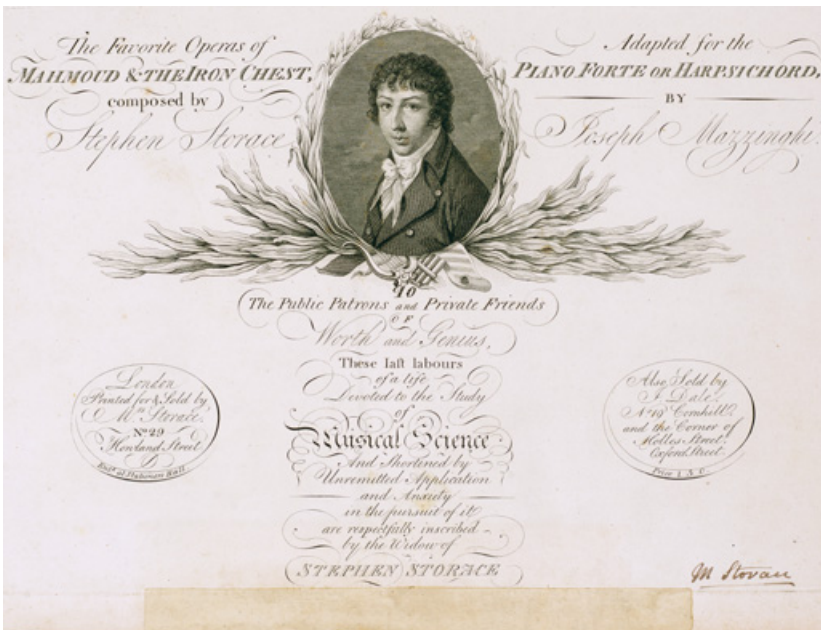 The Favorite Operas of
MAHMOUD & THE IRON CHEST,
composed by
Stephen Storace
Adapted for the
PIANO FORTE OR HARPSICHORD,
BY
Joseph Mazzinghi.
TO
The Public Patrons and Private Friends
OF
Worth and Genius,
These last labours
of a life
Devoted to the Study
of
Musical Science
And Shortened by
Unremitted Application
and Anxiety
in the pursuit of it
are respectfully inscribed
by the Widow of
STEPHEN STORACE
London
Printed for & Sold by
Mrs Storace.
No 29
Howland Street
Entd at Stationers Hall
Also Sold by
J. Dale.
No 19 Cornhill.
and the Corner of
Holles Street.
Oxford Street.
Price
M Storace